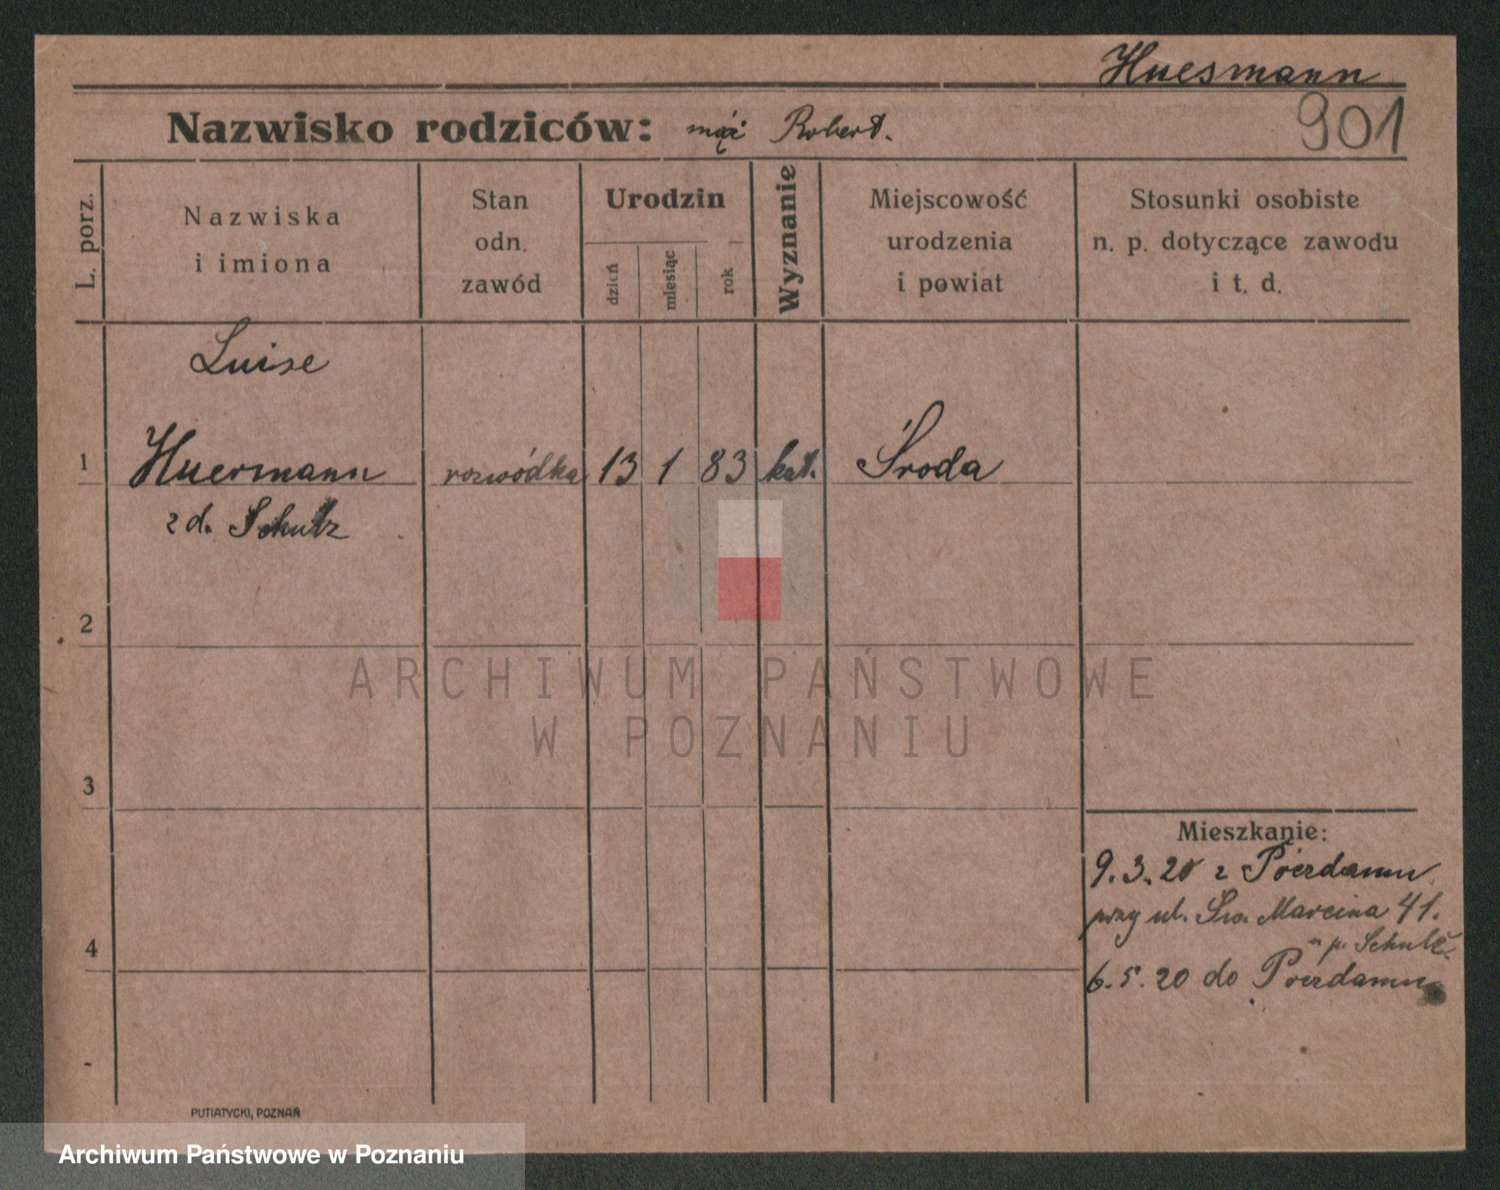 Huesmann
901
Nazwisko rodziców: mąż Robert.
L. porz.
Nazwiska
i imiona
Stan
odn.
zawód
Urodzin
dzień
miesiąc
rok
Wyznanie
Miejscowość
urodzenia
i powiat
Stosunki osobiste
n. p. dotyczące zawodu
i t. d.
Luise
1 Huesmann rozwódka 13 1 83 kat. Środa
z d. Schulz
2
3
4
Mieszkanie:
9.3.20 z Poczdamu
przy ul. Św. Marcina 41.
u p. Schulz.
6.5.20 do Poczdamu
PUTIATYCKI, POZNAŃ
ARCHIWUM PAŃSTWOWE
W POZNANIU
Archiwum Państwowe w Poznaniu